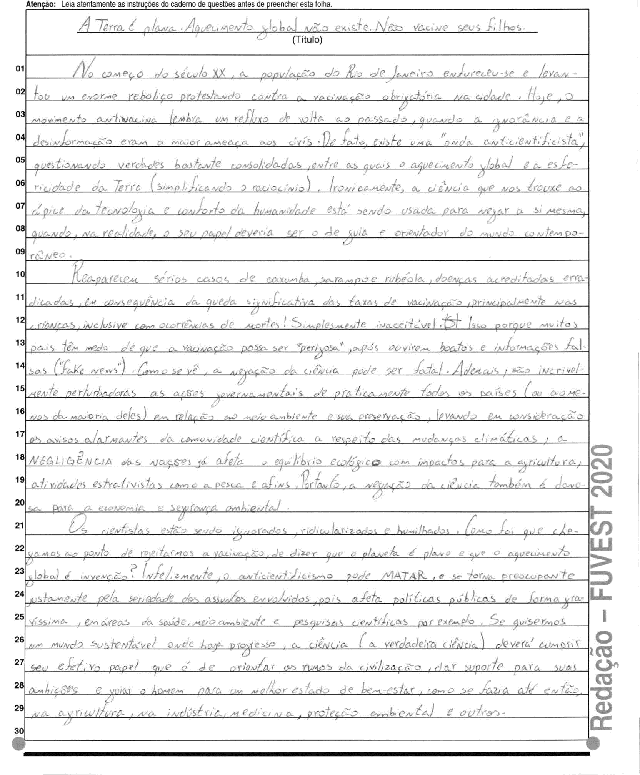 Atenção: Leia atentamente as instruções do caderno de questões antes de preencher esta folha.
A Terra é plana. Aquecimento global não existe. Não vacine seus filhos.
(Título)
01 No começo do século XX, a população do Rio de Janeiro enfureceu-se e levan-
02 tou um enorme reboliço protestando contra a vacinação obrigatória na cidade. Hoje, o
03 movimento antivacina lembra um refluxo de volta ao passado, quando a ignorância e a
04 desinformação eram a maior ameaça aos civis. De fato, existe uma "onda anticientificista",
05 questionando verdades bastante consolidadas, entre as quais o aquecimento global e a esfe-
06 ricidade da Terra (simplificando o raciocínio). Ironicamente, a ciência que nos trouxe ao
07 ápice da tecnologia e conforto da humanidade está sendo usada para negar a si mesma,
08 quando, na realidade, o seu papel deveria ser o de guia e orientador do mundo contempo-
09 râneo.
10 Reaparecem sérios casos de caxumba, sarampo e rubéola, doenças acreditadas erra-
11 dicadas, em consequência da queda significativa das taxas de vacinação, principalmente nas
12 crianças, inclusive com ocorrências de mortes! Simplesmente inaceitável. Isso porque muitos
13 pais têm medo de que a vacinação possa ser "perigosa", após ouvirem boatos e informações fal-
14 sas ("fake news"). Como se vê, a negação da ciência pode ser fatal. Ademais, são incrivel-
15 mente perturbadoras as ações governamentais de praticamente todos os países (ou ao me-
16 nos da maioria deles) em relação ao meio ambiente e sua preservação, levando em consideração
17 os avisos alarmantes da comunidade científica a respeito das mudanças climáticas; a
18 NEGLIGÊNCIA das nações já afeta o equilíbrio ecológico com impactos para a agricultura,
19 atividades extrativistas como a pesca e afins. Portanto, a negação da ciência também é dano-
20 sa para a economia e segurança ambiental.
21 Os cientistas estão sendo ignorados, ridicularizados e humilhados. Como foi que che-
22 gamos ao ponto de rejeitarmos a vacinação, de dizer que o planeta é plano e que o aquecimento
23 global é invenção? Infelizmente, o anticientificismo pode MATAR, e se torna preocupante
24 justamente pela seriedade dos assuntos envolvidos, pois afeta políticas públicas de forma gra-
25 víssima, em áreas da saúde, meio ambiente e pesquisas científicas por exemplo. Se quisermos
26 um mundo sustentável onde haja progresso, a ciência (a verdadeira ciência) deverá cumprir
27 seu efetivo papel que é de orientar os rumos da civilização, dar suporte para suas
28 ambições e guiar o homem para um melhor estado de bem-estar, como se fazia até então,
29 na agricultura, na indústria, medicina, proteção ambiental e outros.
30
Redação – FUVEST 2020